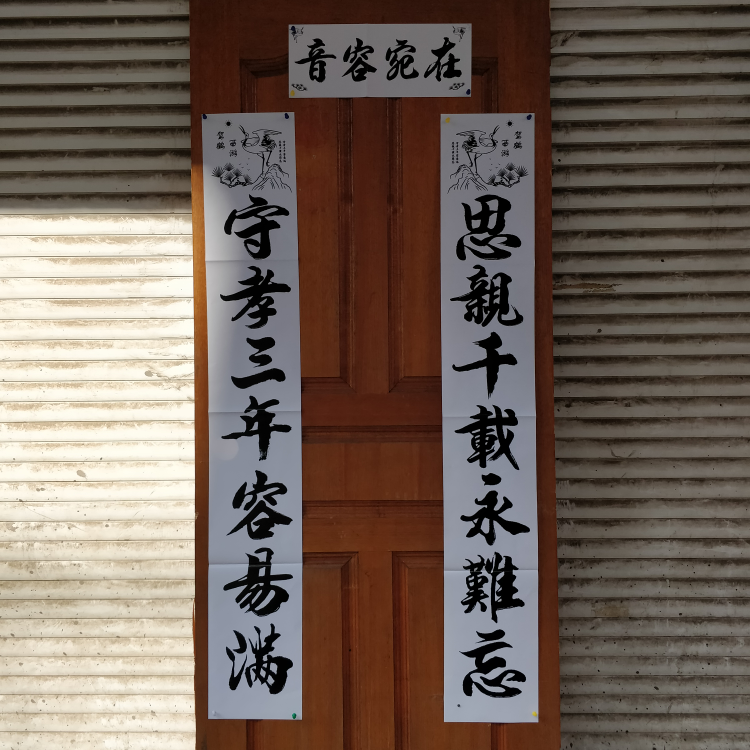 音容宛在
思親千載永難忘
守孝三年容易满